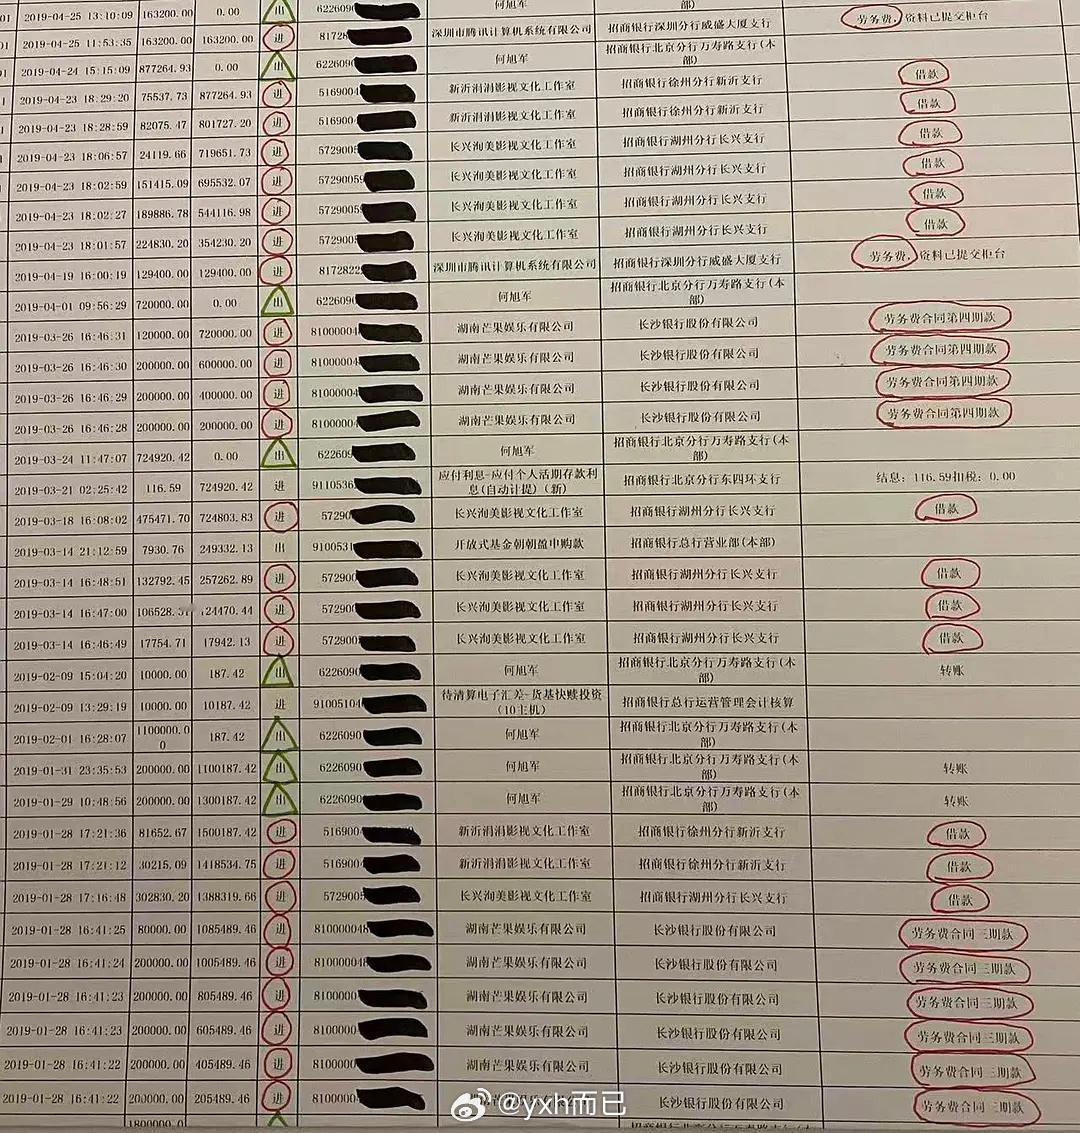 01 2019-04-25 13:10:09 163200.00 0.00 出 6226090 何旭军 部)
01 2019-04-25 11:53:35 163200.00 163200.00 进 81728 深圳市腾讯计算机系统有限公司 招商银行深圳分行威盛大厦支行 劳务费,资料已提交柜台
01 2019-04-24 15:15:09 877264.93 0.00 出 622609 何旭军 招商银行北京分行万寿路支行(本部)
1 2019-04-23 18:29:20 75537.73 877264.93 进 516900 新沂涓涓影视文化工作室 招商银行徐州分行新沂支行 借款
1 2019-04-23 18:28:59 82075.47 801727.20 进 516900 新沂涓涓影视文化工作室 招商银行徐州分行新沂支行 借款
1 2019-04-23 18:06:57 24119.66 719651.73 进 5729005 长兴洵美影视文化工作室 招商银行湖州分行长兴支行 借款
2019-04-23 18:02:59 151415.09 695532.07 进 5729005 长兴洵美影视文化工作室 招商银行湖州分行长兴支行 借款
2019-04-23 18:02:27 189886.78 544116.98 进 5729005 长兴洵美影视文化工作室 招商银行湖州分行长兴支行 借款
2019-04-23 18:01:57 224830.20 354230.20 进 572900 长兴洵美影视文化工作室 招商银行湖州分行长兴支行 借款
2019-04-19 16:00:19 129400.00 129400.00 进 8172822 深圳市腾讯计算机系统有限公司 招商银行深圳分行威盛大厦支行 劳务费,资料已提交柜台
2019-04-01 09:56:29 720000.00 0.00 出 622609 何旭军 招商银行北京分行万寿路支行(本部)
2019-03-26 16:46:31 120000.00 720000.00 进 81000004 湖南芒果娱乐有限公司 长沙银行股份有限公司 劳务费合同第四期款
2019-03-26 16:46:30 200000.00 600000.00 进 81000004 湖南芒果娱乐有限公司 长沙银行股份有限公司 劳务费合同第四期款
2019-03-26 16:46:29 200000.00 400000.00 进 8100000 湖南芒果娱乐有限公司 长沙银行股份有限公司 劳务费合同第四期款
2019-03-26 16:46:28 200000.00 200000.00 进 8100000 湖南芒果娱乐有限公司 长沙银行股份有限公司 劳务费合同第四期款
2019-03-24 11:47:07 724920.42 0.00 出 62260 何旭军 招商银行北京分行万寿路支行(本部)
2019-03-21 02:25:42 116.59 724920.42 进 9110536 应付利息-应付个人活期存款利息(自动计提)(新) 招商银行北京分行东四环支行 结息:116.59扣税:0.00
2019-03-18 16:08:02 475471.70 724803.83 进 5729 长兴洵美影视文化工作室 招商银行湖州分行长兴支行 借款
2019-03-14 21:12:59 7930.76 249332.13 出 9100531 开放式基金朝朝盈申购款 招商银行总行营业部(本部)
2019-03-14 16:48:51 132792.45 257262.89 进 572900 长兴洵美影视文化工作室 招商银行湖州分行长兴支行 借款
2019-03-14 16:47:00 106528. 124470.44 进 572900 长兴洵美影视文化工作室 招商银行湖州分行长兴支行 借款
2019-03-14 16:46:49 17754.71 17942.13 进 572900 长兴洵美影视文化工作室 招商银行湖州分行长兴支行 借款
2019-02-09 15:04:20 10000.00 187.42 出 622609 何旭军 招商银行北京分行万寿路支行(本部) 转账
2019-02-09 13:29:19 10000.00 10187.42 进 91005104 待清算电子汇差-货基快赎投资(10主机) 招商银行总行运营管理会计核算
2019-02-01 16:28:07 1100000.00 187.42 出 6226090 何旭军 招商银行北京分行万寿路支行(本部)
2019-01-31 23:35:53 200000.00 1100187.42 出 6226090 何旭军 招商银行北京分行万寿路支行(本部) 转账
2019-01-29 10:48:56 200000.00 1300187.42 出 6226090 何旭军 招商银行北京分行万寿路支行(本部) 转账
2019-01-28 17:21:36 81652.67 1500187.42 进 516900 新沂涓涓影视文化工作室 招商银行徐州分行新沂支行 借款
2019-01-28 17:21:12 30215.09 1418534.75 进 516900 新沂涓涓影视文化工作室 招商银行徐州分行新沂支行 借款
2019-01-28 17:16:48 302830.20 1388319.66 进 572900 长兴洵美影视文化工作室 招商银行湖州分行长兴支行 借款
2019-01-28 16:41:25 80000.00 1085489.46 进 81000004 湖南芒果娱乐有限公司 长沙银行股份有限公司 劳务费合同三期款
2019-01-28 16:41:24 200000.00 1005489.46 进 81000004 湖南芒果娱乐有限公司 长沙银行股份有限公司 劳务费合同三期款
2019-01-28 16:41:23 200000.00 805489.46 进 8100000 湖南芒果娱乐有限公司 长沙银行股份有限公司 劳务费合同三期款
2019-01-28 16:41:23 200000.00 605489.46 进 8100000 湖南芒果娱乐有限公司 长沙银行股份有限公司 劳务费合同三期款
2019-01-28 16:41:22 200000.00 405489.46 进 8100000 湖南芒果娱乐有限公司 长沙银行股份有限公司 劳务费合同三期款
2019-01-28 16:41:22 200000.00 205489.46 进 8100000 长沙银行股份有限公司 劳务费合同三期款
@yxh而已